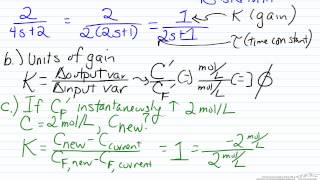 2/(4s+2) = 2/(2(2s+1)) = 1/(2s+1) K (gain)
τ (time constant)
b.) Units of gain
K = Δoutput var / Δinput var = C' / C_F' (=) mol/L / mol/L (=) ϕ
c.) If C_F' instantaneously ↑ 2 mol/L
C = 2 mol/L, C_new?
K = (C_new - C_current) / (C_F,new - C_F,current) = 1 = (-2 mol/L) / (2 mol/L)